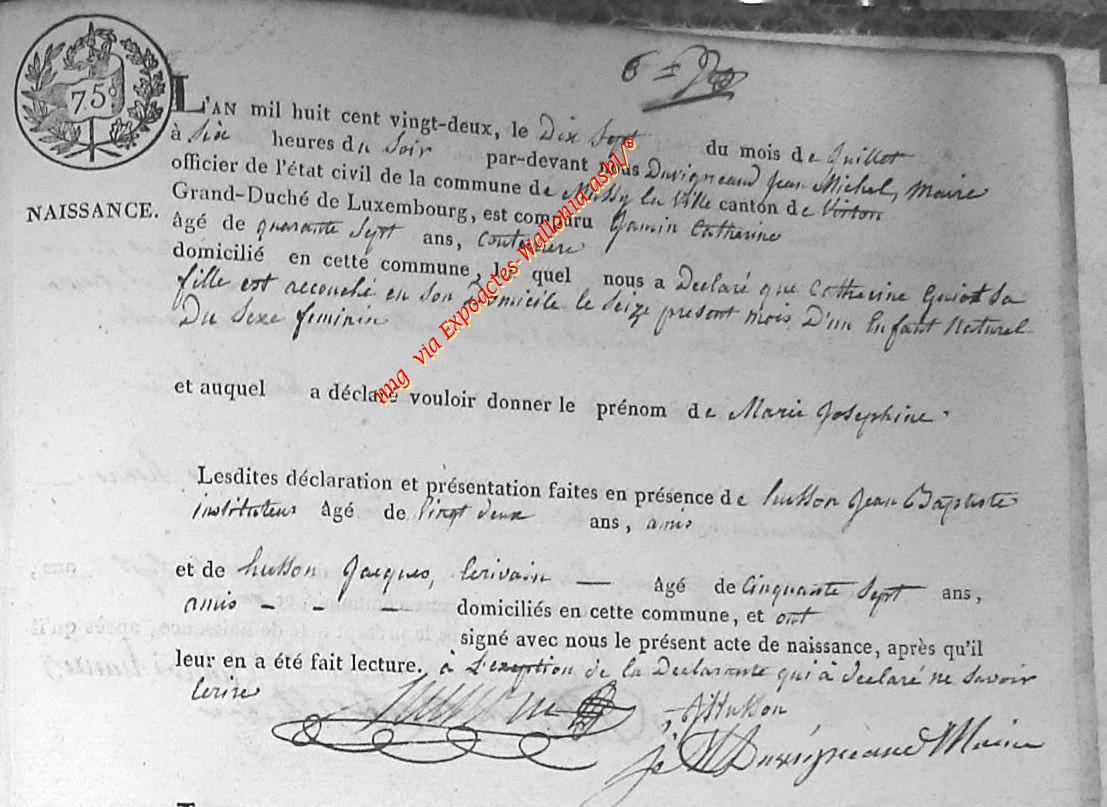 75c
L'AN mil huit cent vingt-deux, le Dix Sept du mois de Juillet
à Six heures du Soir par-devant nous Duvigneaud Jean Michel, Maire
officier de l'état civil de la commune de Mussy la Ville canton de Virton
NAISSANCE.
Grand-Duché de Luxembourg, est comparu Jamin Catherine
âgé de quarante Sept ans, Couturiere
domicilié en cette commune, le quel nous a Declaré que Catherine Guiot Sa
fille est accouché en son Domicile le Seize present mois D'un Enfant Naturel
Du Sexe feminin
et auquel a déclaré vouloir donner le prénom de Marie Josephine
Lesdites déclaration et présentation faites en présence de husson Jean Baptiste
instituteur âgé de Vingt deux ans, amis
et de husson Jacques, Ecrivain — âgé de Cinquante Sept ans,
amis - - domiciliés en cette commune, et ont
signé avec nous le présent acte de naissance, après qu'il
leur en a été fait lecture. à L'exception de la Declarante qui à declaré ne Savoir
Ecrire
JBHusson
JM Duvigneaud Maire
img via Expoactes-Wallonia-asbl/©